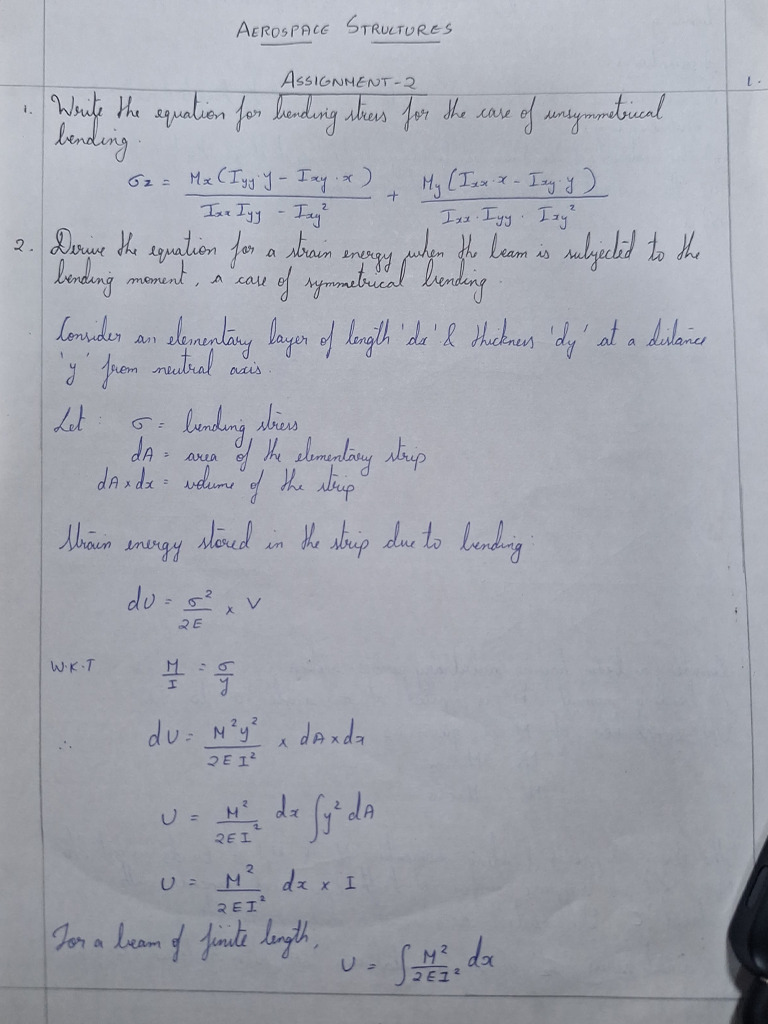 AEROSPACE STRUCTURES
ASSIGNMENT-2
1.
1. Write the equation for bending stress for the case of unsymmetrical
bending.
σz = Mx(Iyy·y - Ixy·x) / Ixx Iyy - Ixy² + My(Ixx·x - Ixy·y) / Ixx·Iyy·Ixy²
2. Derive the equation for a strain energy when the beam is subjected to the
bending moment, a case of symmetrical bending.
Consider an elementary layer of length 'dx' & thickness 'dy' at a distance
'y' from neutral axis.
Let: σ = bending stress
dA = area of the elementary strip
dA x dx = volume of the strip
Strain energy stored in the strip due to bending:
dU = σ²/2E x V
W.K.T M/I = σ/y
∴ dU = M²y²/2EI² x dA x dx
U = M²/2EI² dx ∫y² dA
U = M²/2EI² dx x I
For a beam of finite length,
U = ∫M²/2EI² dx